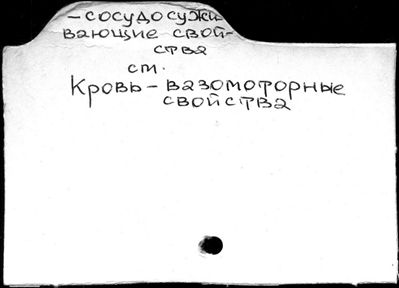 - сосудосужи-
вающие свой-
ства
см.
Кровь - вазомоторные
свойства